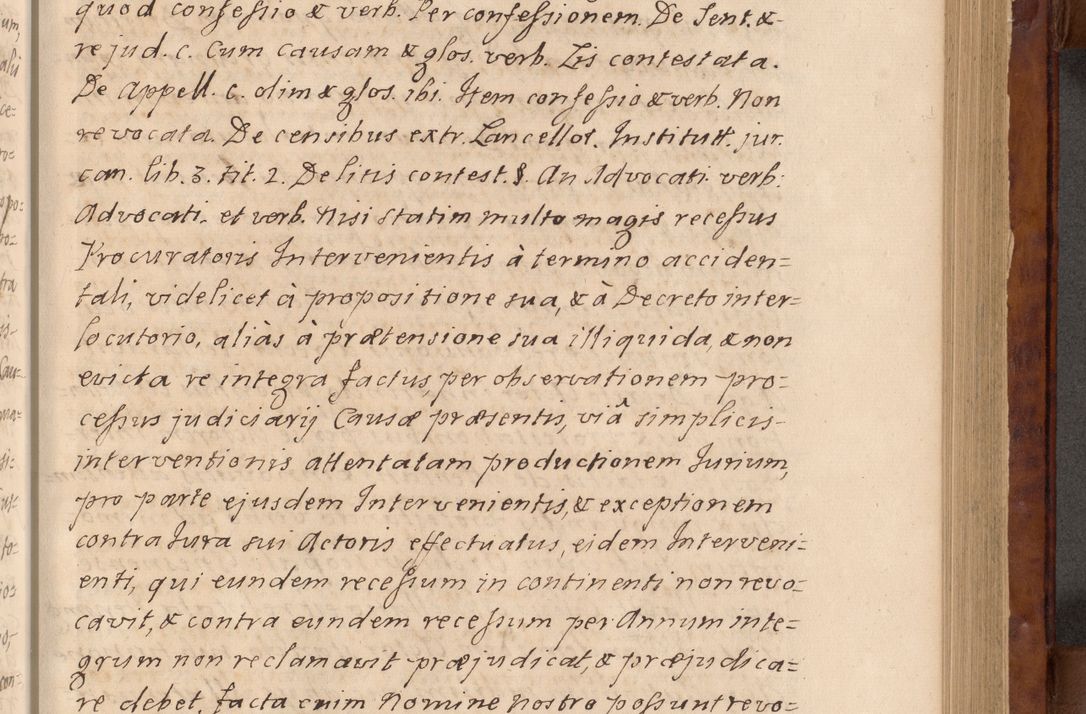 quod confessio & verb. Per confessionem. De Sent. &
re jud. c. Cum causam & glos. verb. Lis contestata.
De Appell. c. olim & glos. ibi. Item confessio & verb. Non
revocata. De censibus extr. Lancellot. Institutt. jur.
can. lib. 3. tit. 2. De litis contest. §. An Advocati verb:
Advocati. et verb. Nisi statim multo magis recessus
Procuratoris Intervenientis à termino acciden=
tali, videlicet à propositione sua, & à Decreto inter=
locutorio, aliàs à prætensione sua illiquida, & non
evicta re integra factus, per observationem pro=
cessus judiciarij Causæ præsentis, viâ simplicis
interventionis attentatam productionem Iurium,
pro parte ejusdem Intervenientis, & exceptionem
contra Iura sui Actoris effectuatus, eidem Interveni=
enti, qui eundem recessum in continenti non revo=
cavit, & contra eundem recessum per Annum inte=
grum non reclamavit præjudicat, & præjudica=
re debet, facta enim Nomine nostro possunt revo=